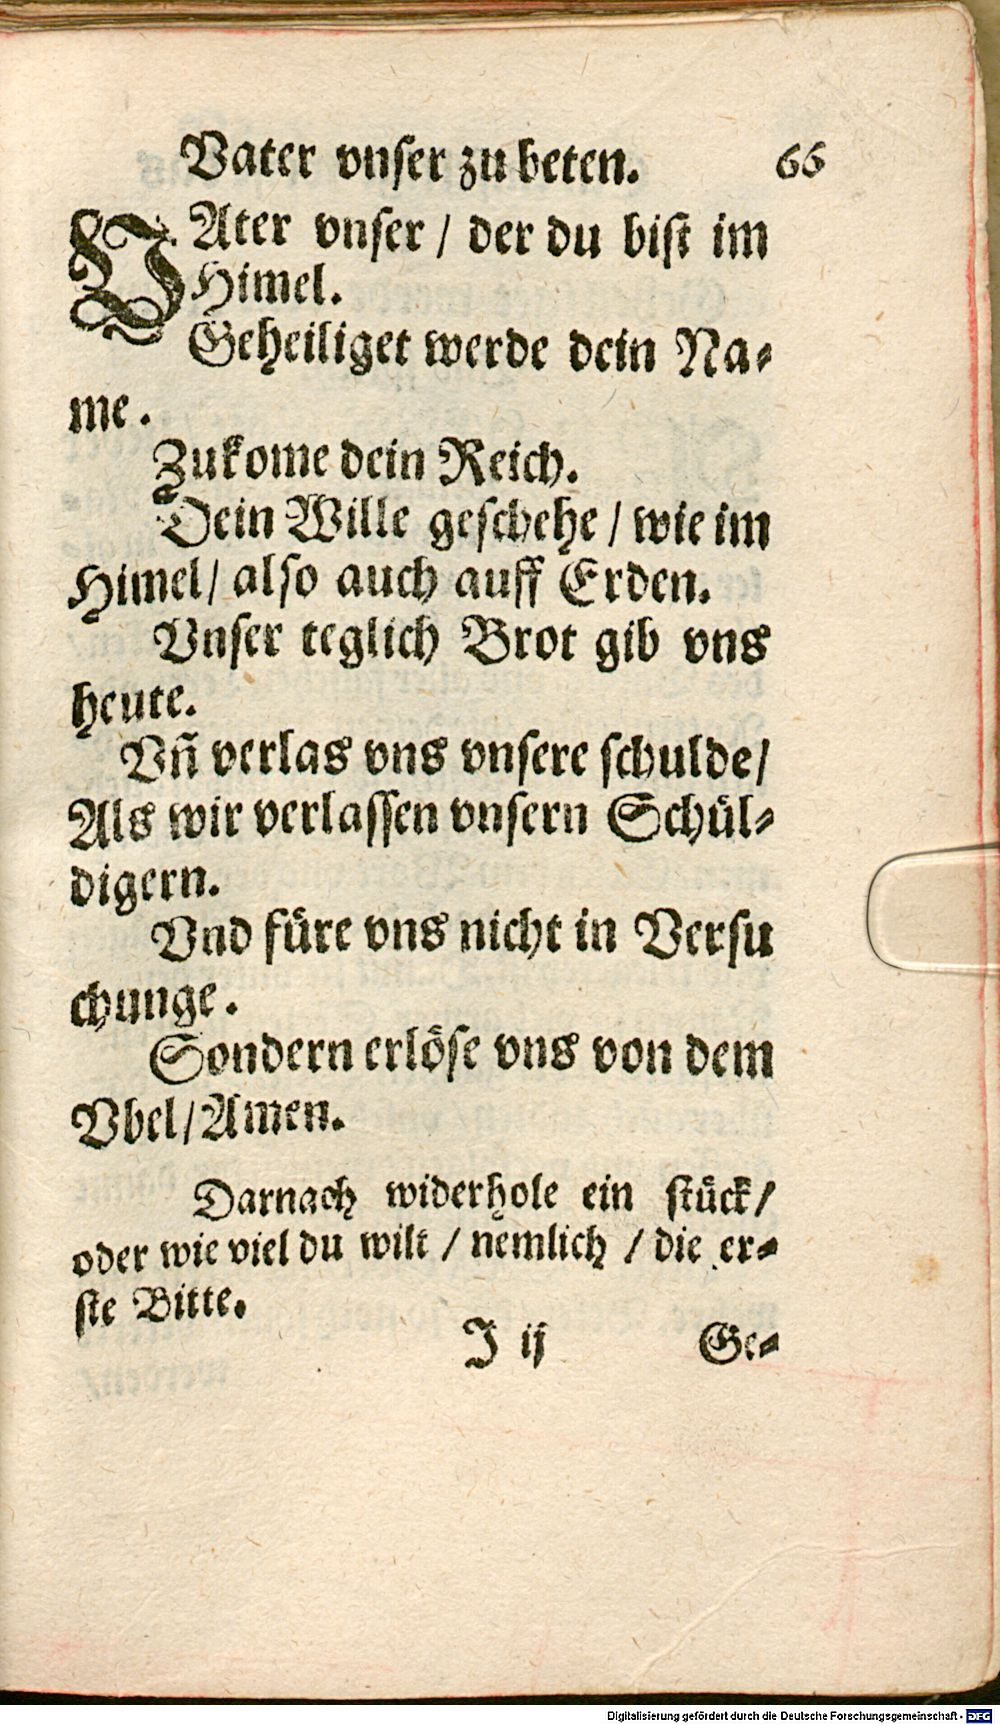 Vater vnſer zu beten. 66
VAter vnſer / der du biſt im
Himel.
Geheiliget werde dein Na⸗
me.
Zukome dein Reich.
Dein Wille geſchehe / wie im
Himel / alſo auch auff Erden.
Vnſer teglich Brot gib vns
heute.
Vñ verlas vns vnſere ſchulde /
Als wir verlaſſen vnſern Schül⸗
digern.
Vnd füre vns nicht in Verſu
chunge.
Sondern erlöſe vns von dem
Vbel / Amen.
Darnach widerhole ein ſtück /
oder wie viel du wilt / nemlich / die er⸗
ſte Bitte.
J ij Ge⸗
Digitalisierung gefördert durch die Deutsche Forschungsgemeinschaft - DFG